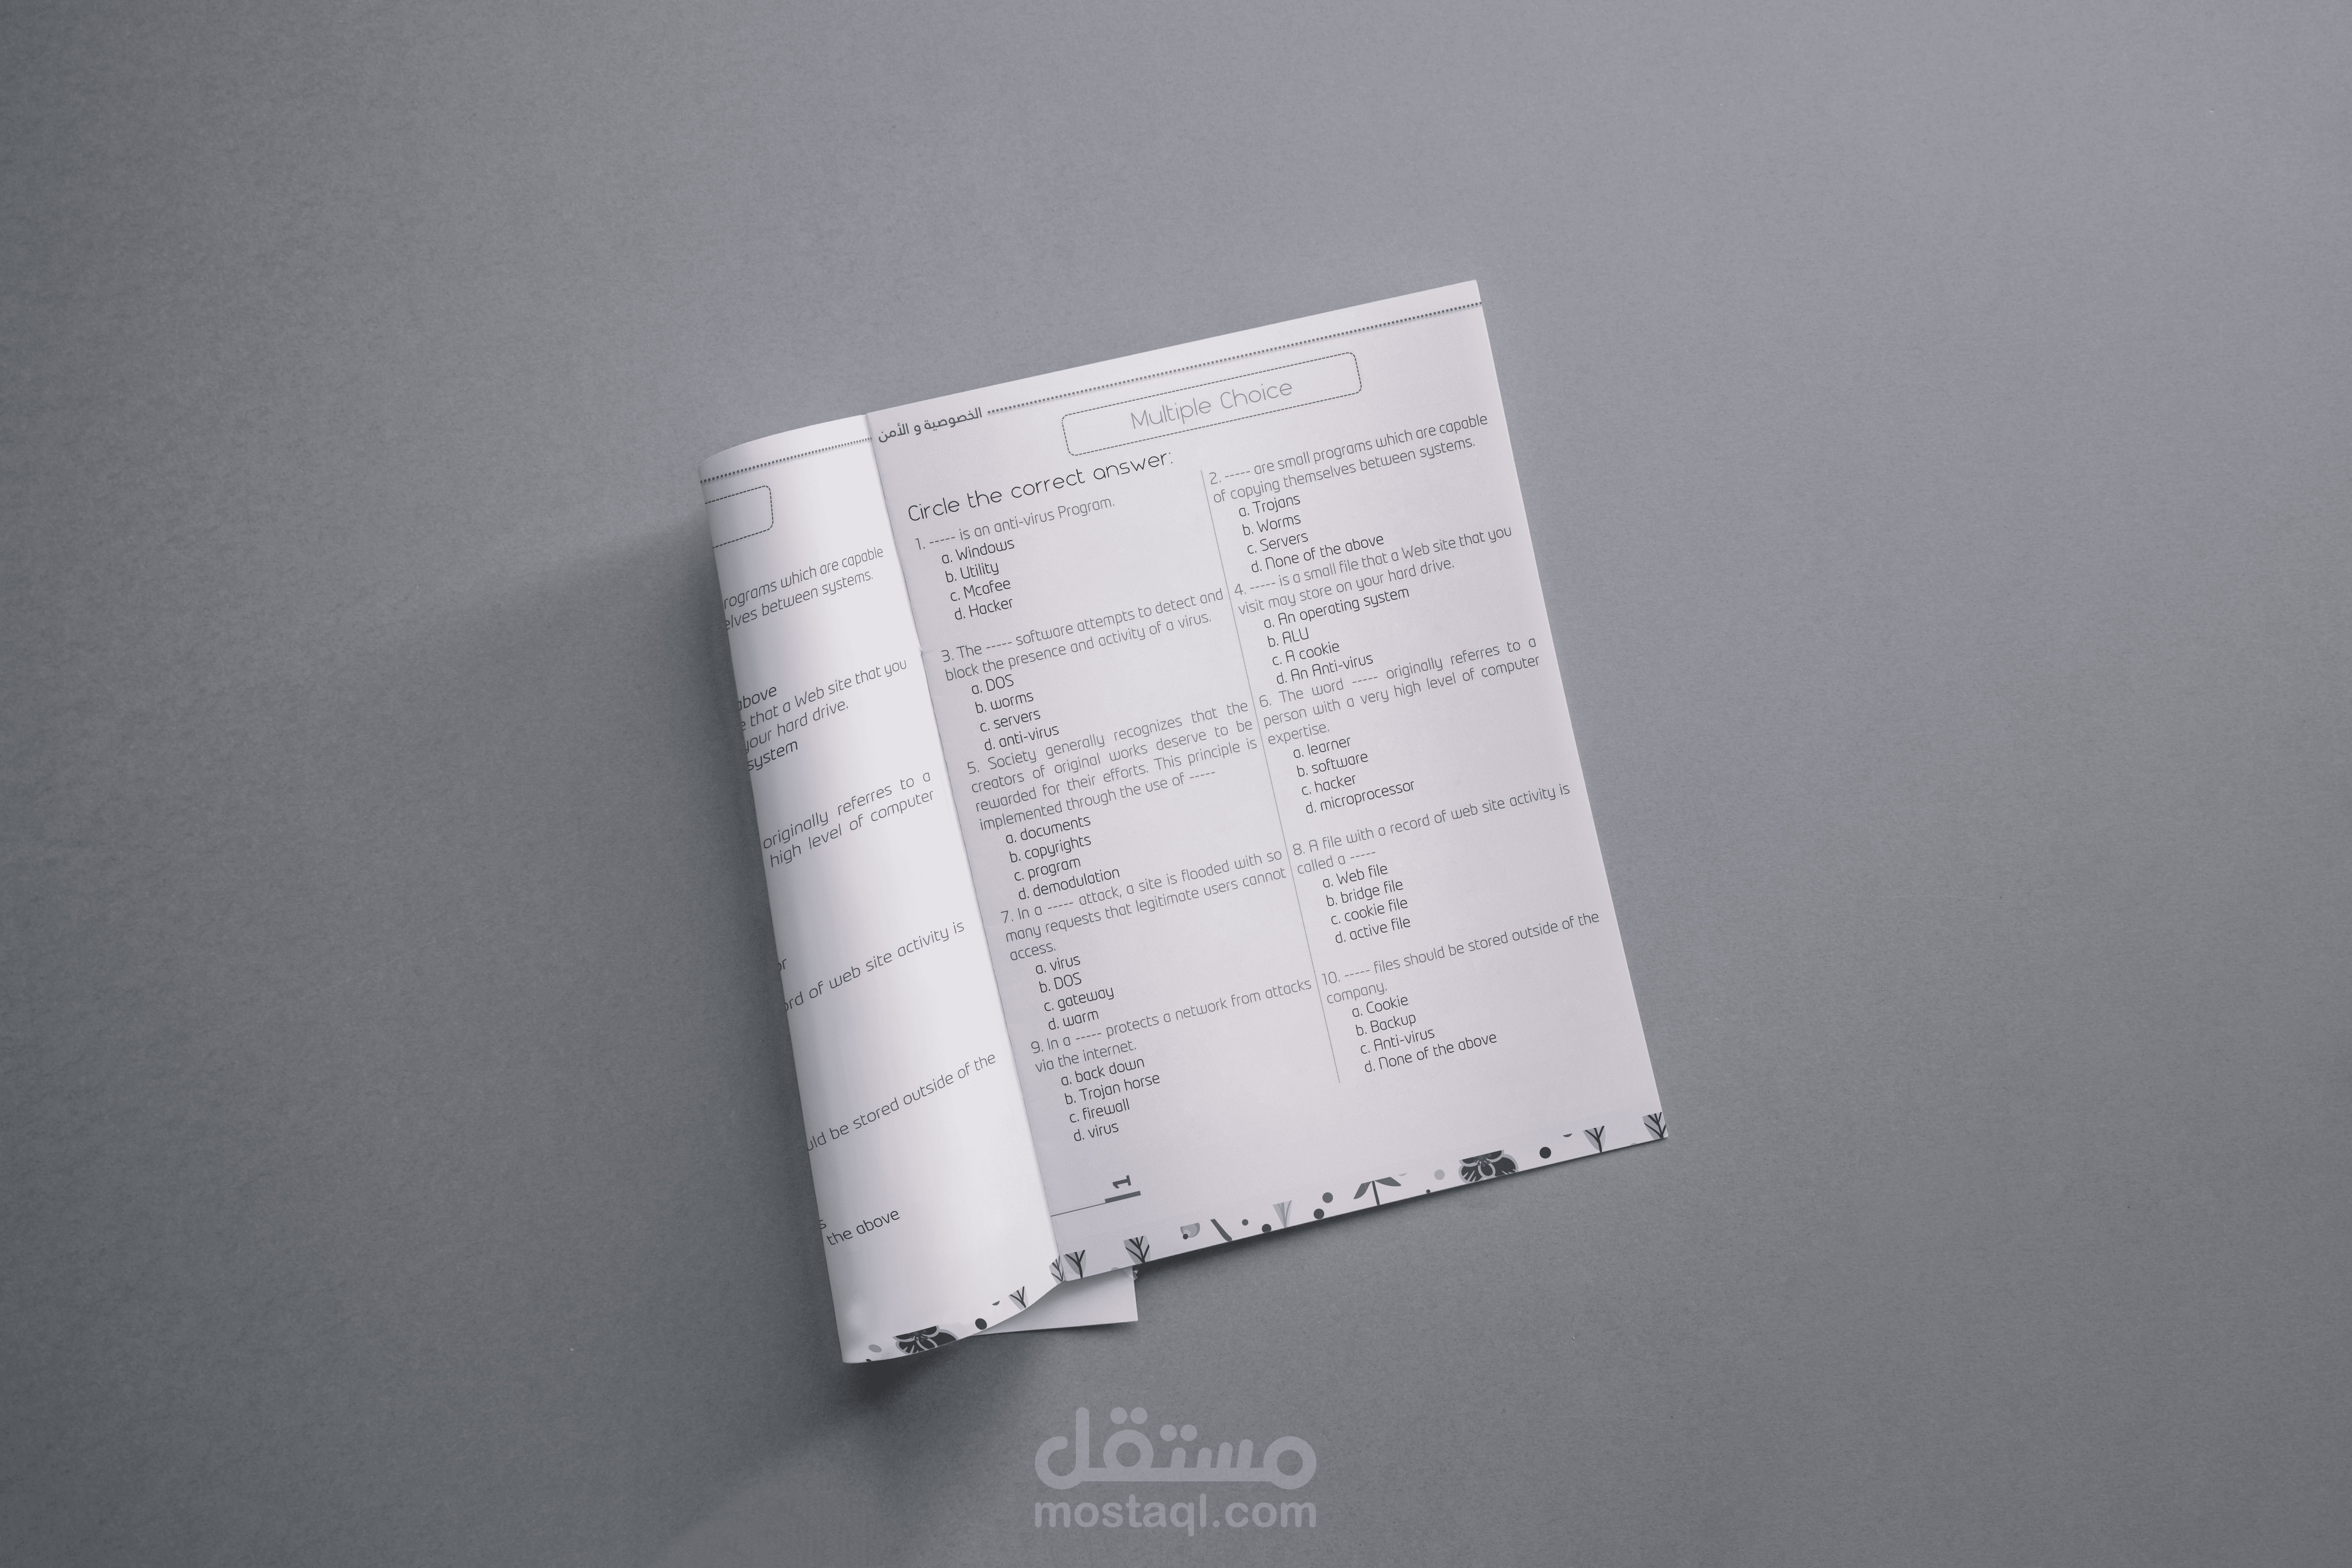 rograms which are capable
elves between systems.
above
e that a Web site that you
your hard drive.
system
originally referres to a
high level of computer
or
ord of web site activity is
uld be stored outside of the
s
the above
الخصوصية و الأمن
Multiple Choice
Circle the correct answer:
1. ----- is an anti-virus Program.
a. Windows
b. Utility
c. Mcafee
d. Hacker
2. ----- are small programs which are capable
of copying themselves between systems.
a. Trojans
b. Worms
c. Servers
d. None of the above
3. The ----- software attempts to detect and
block the presence and activity of a virus.
a. DOS
b. worms
c. servers
d. anti-virus
4. ----- is a small file that a Web site that you
visit may store on your hard drive.
a. An operating system
b. ALU
c. A cookie
d. An Anti-virus
5. Society generally recognizes that the
creators of original works deserve to be
rewarded for their efforts. This principle is
implemented through the use of -----
a. documents
b. copyrights
c. program
d. demodulation
6. The word ----- originally referres to a
person with a very high level of computer
expertise.
a. learner
b. software
c. hacker
d. microprocessor
7. In a ----- attack, a site is flooded with so
many requests that legitimate users cannot
access.
a. virus
b. DOS
c. gateway
d. warm
8. A file with a record of web site activity is
called a -----
a. Web file
b. bridge file
c. cookie file
d. active file
9. In a ----- protects a network from attacks
via the internet.
a. back down
b. Trojan horse
c. firewall
d. virus
10. ----- files should be stored outside of the
company.
a. Cookie
b. Backup
c. Anti-virus
d. None of the above
1
مستقل
mostaql.com